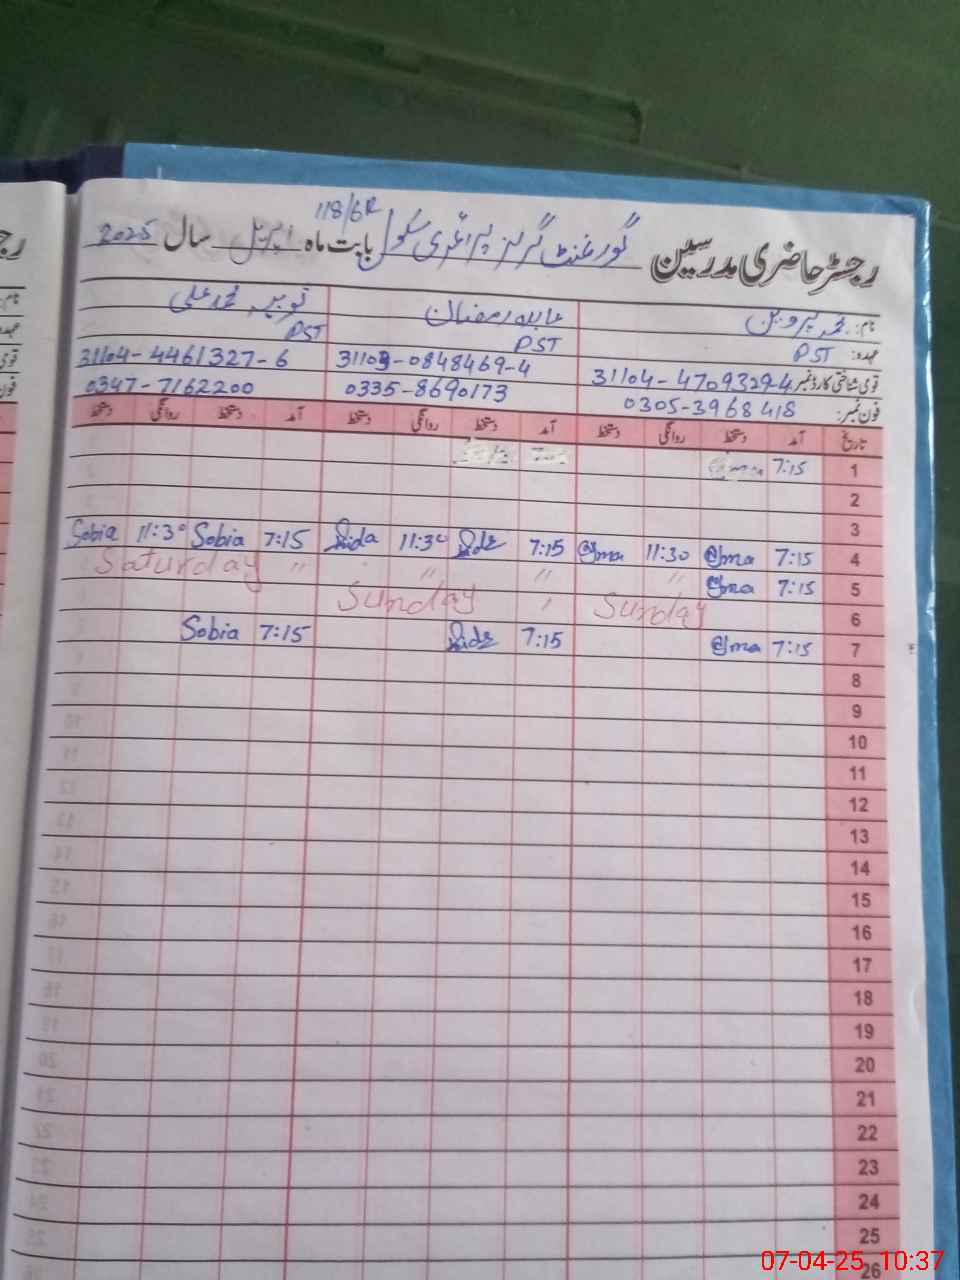 118/6R
رجسٹر حاضری مدرسین گورنمنٹ گرلز پرائمری سکول بابت ماہ اپریل سال 2025
نام: پروین عابدہ رمضان ثوبیہ محمد علی
عہدہ: PST PST PST
قومی شناختی کارڈ نمبر 31104-4709329-4 31103-0848469-4 31104-4461327-6
فون نمبر: 0305-3968418 0335-8690173 0347-7162200
تاریخ آمد دستخط روانگی دستخط آمد دستخط روانگی دستخط آمد دستخط روانگی دستخط
1 7:15
2
3
4 7:15 @ma 11:30 @ma 7:15 11:30 7:15 Sobia 11:30 Sobia
5 7:15 @ma " " " " Saturday
6 Sunday " Sunday
7 7:15 @ma 7:15 7:15 Sobia
8
9
10
11
12
13
14
15
16
17
18
19
20
21
22
23
24
25
26
07-04-25 10:37